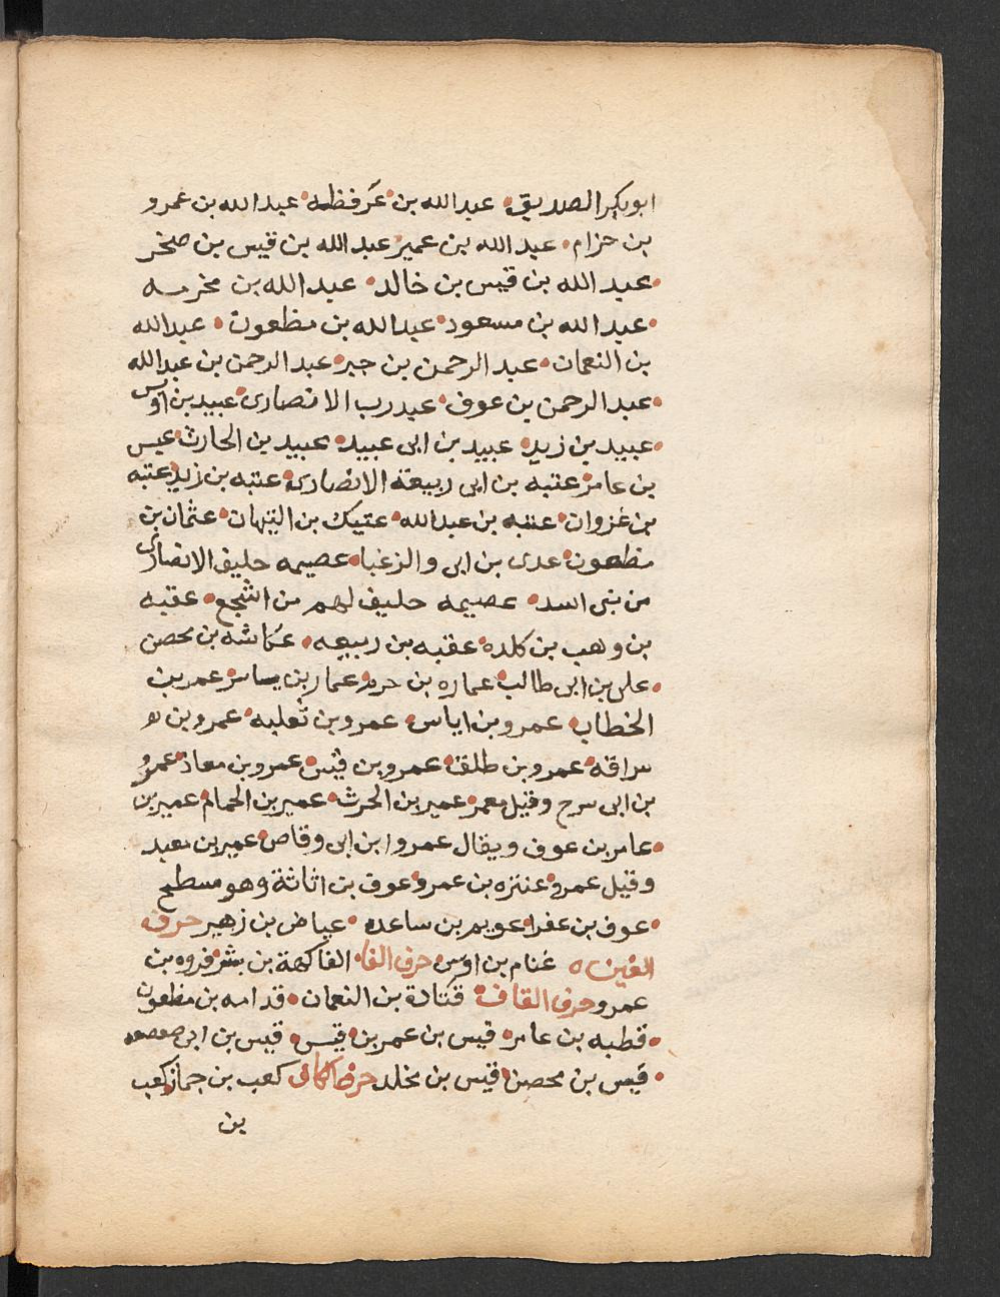 ابوبكر الصديق عبد الله بن عرفطه عبد الله بن عمرو
بن حزام عبد الله بن عمير عبد الله بن قيس بن صخر
عبد الله بن قيس بن خالد عبد الله بن مخرمه
عبد الله بن مسعود عبد الله بن مظعون عبد الله
بن النعمان عبد الرحمن بن جبر عبد الرحمن بن عبد الله
عبد الرحمن بن عوف عبد رب الانصارى عبيد بن اوس
عبيد بن زيد عبيد بن ابى عبيد عبيد بن الحارث عبس
بن عامر عتبه بن ابى ربيعة الانصارى عتبه بن زيد عتبه
بن غزوان عتبه بن عبد الله عتيك بن التيهان عثمان بن
مظعون عدى بن ابى والزغبا عصيمه حليف الانصارى
من بنى اسد عصيمه حليف لهم من اشجع عقبه
بن وهب بن كلده عقبه بن ربيعه عكاشه بن محصن
على بن ابى طالب عماره بن حرم عمار بن ياسر عمر بن
الخطاب عمرو بن اياس عمرو بن ثعلبه عمرو بن
سراقه عمرو بن طلق عمرو بن قيس عمرو بن معاذ عمرو
بن ابى سرح وقيل معمر عمير بن الحرث عمير بن الحمام عمير بن
عامر بن عوف ويقال عمرو ابن ابى وقاص عمير بن معبد
وقيل عمرو عنتره بن عمرو عوف بن اثاثة وهو مسطح
عوف بن عفرا عويم بن ساعده عياض بن زهير حرف
الغين غنام بن اوس حرف الفا الفاكهة بن بشر فروه بن
عمرو حرف القاف قتادة بن النعمان قدامه بن مظعون
قطبه بن عامر قيس بن عمر بن قيس قيس بن ابى صعصعه
قيس بن محصن قيس بن مخلد حرف الكاف كعب بن جماز كعب
بن